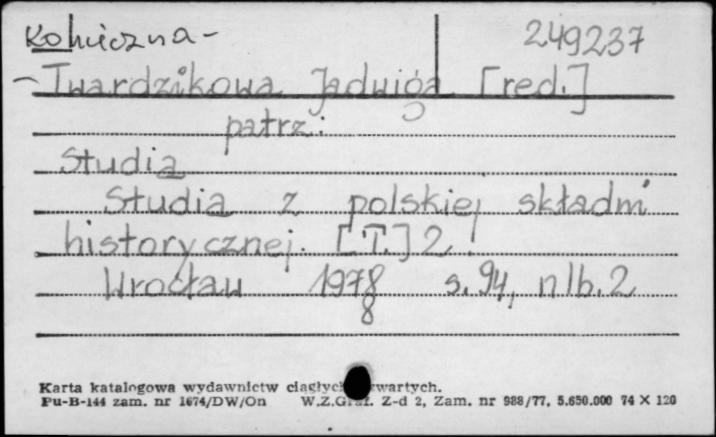 Koniczna- 249237
-Twardzikowa Jadwiga [red.]
patrz:
Studia
Studia z polskiej składni
historycznej. [T.] 2.
Wrocław 1978 s. 94, nlb. 2
8
Karta katalogowa wydawnictw ciągłych zwartych.
Pu-B-144 zam. nr 1674/DW/On W.Z.Graf. Z-d 2, Zam. nr 988/77, 5.650.000 74 X 120